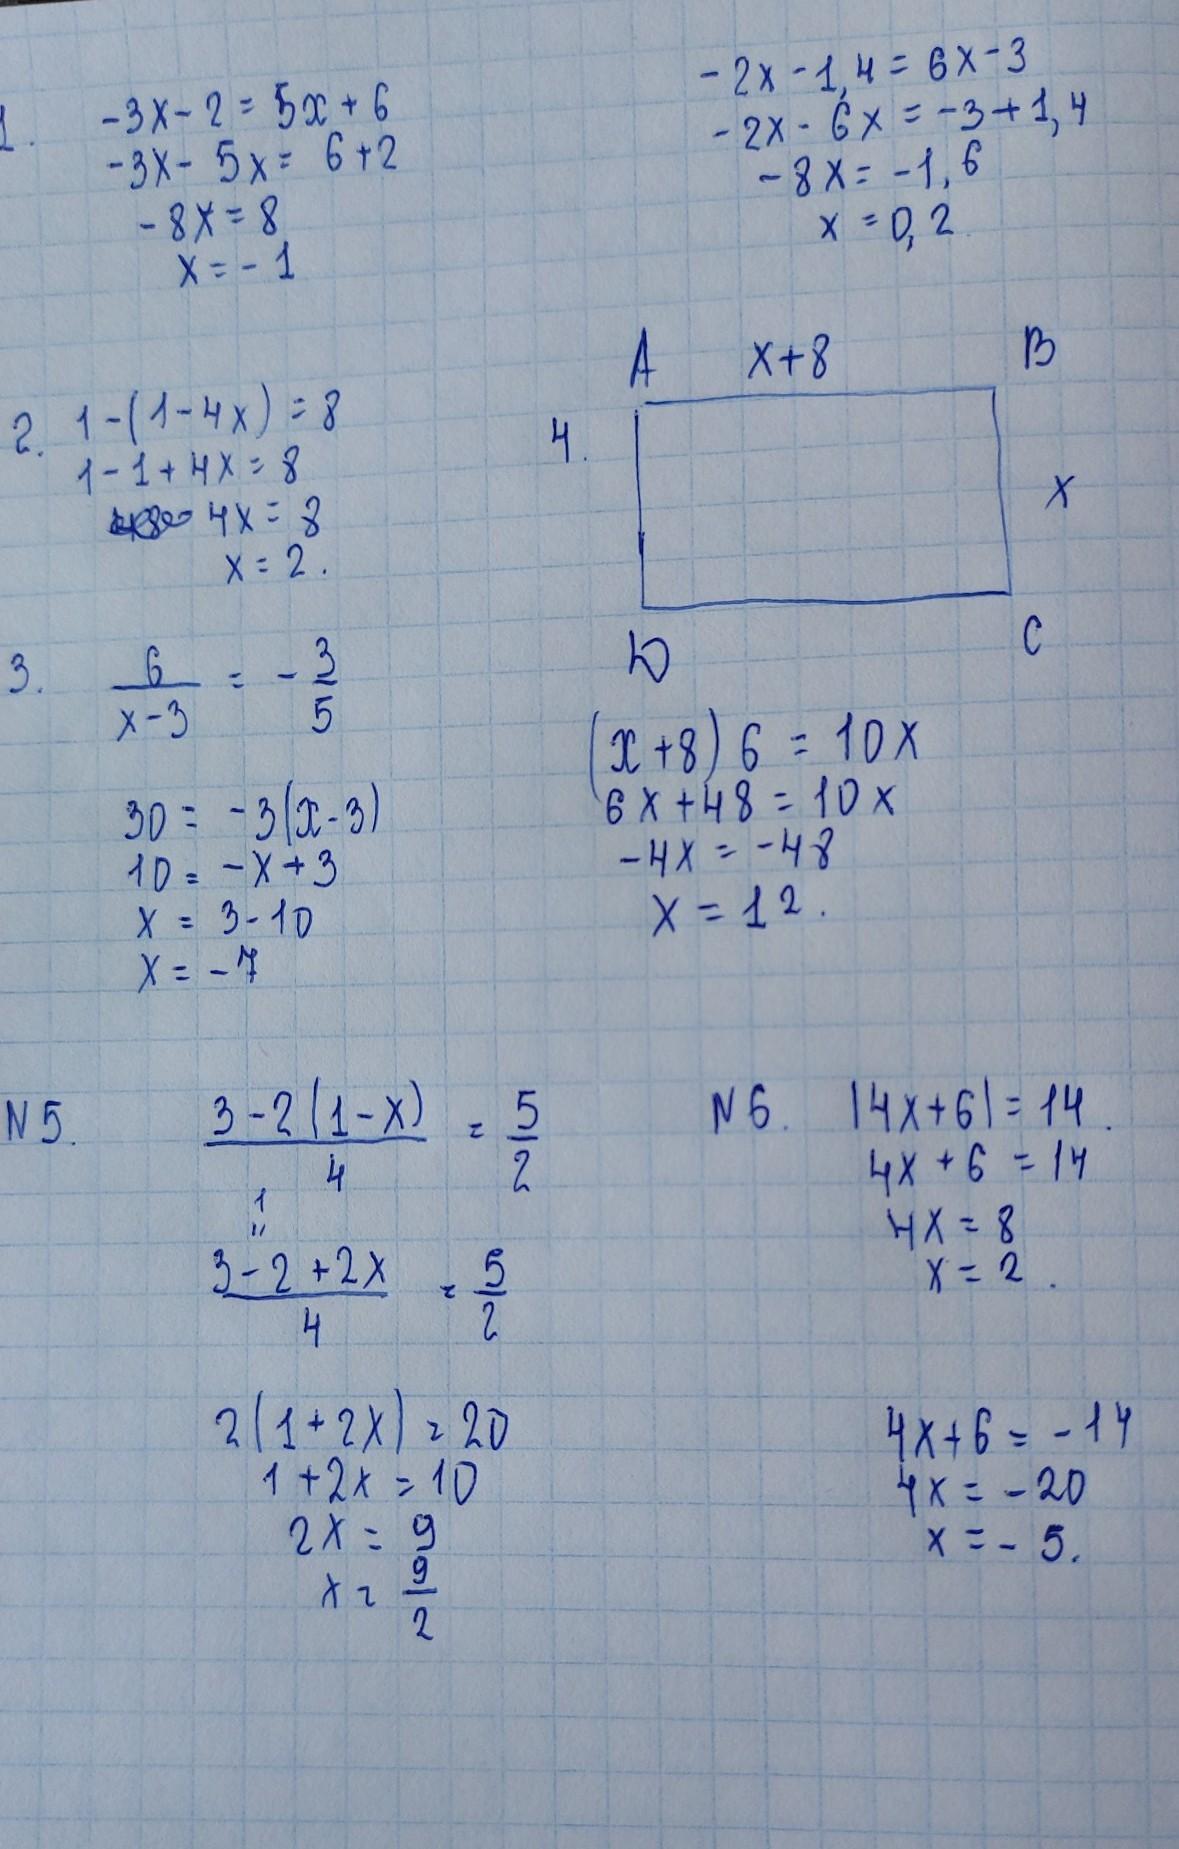 1.
-3x - 2 = 5x + 6
-3x - 5x = 6 + 2
-8x = 8
x = -1
-2x - 1,4 = 6x - 3
-2x - 6x = -3 + 1,4
-8x = -1,6
x = 0,2
2. 1 - (1 - 4x) = 8
1 - 1 + 4x = 8
4x = 8
x = 2.
3. 6/(x-3) = -3/5
30 = -3(x - 3)
10 = -x + 3
x = 3 - 10
x = -7
4.
A x+8 B
x
D C
(x + 8) 6 = 10x
6x + 48 = 10x
-4x = -48
x = 12.
N5. (3 - 2(1 - x))/4 = 5/2
1
"
(3 - 2 + 2x)/4 = 5/2
2(1 + 2x) = 20
1 + 2x = 10
2x = 9
x = 9/2
N6. |4x + 6| = 14.
4x + 6 = 14
4x = 8
x = 2.
4x + 6 = -14
4x = -20
x = -5.